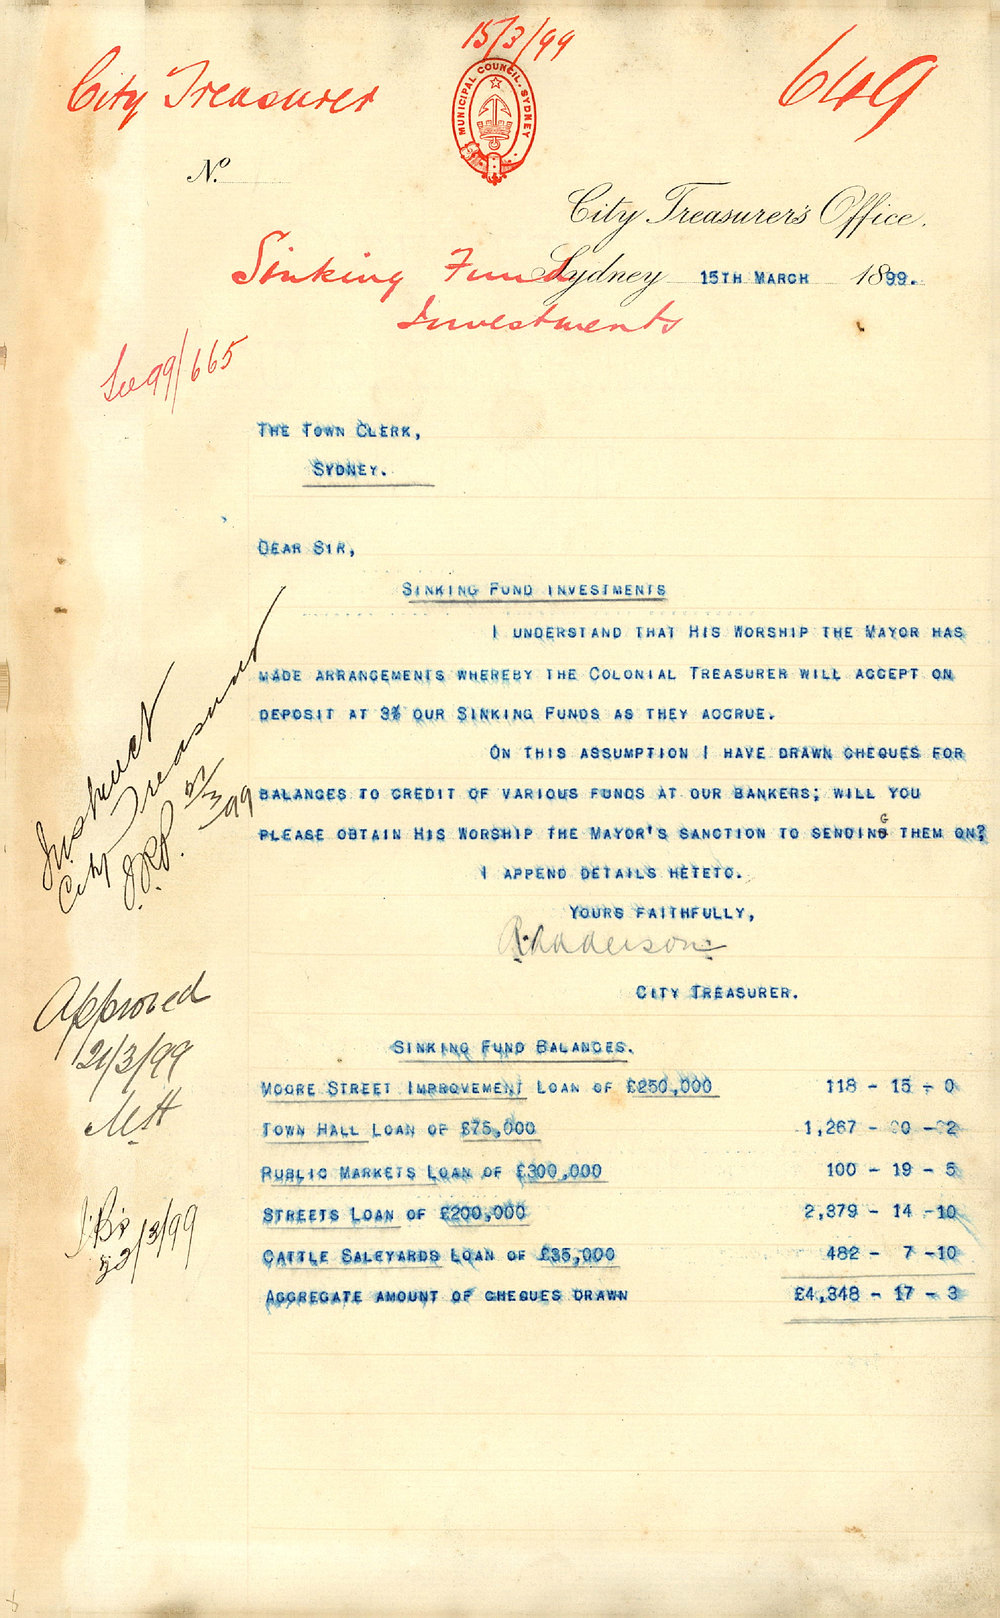 15/3/99
City Treasurer
649
MUNICIPAL COUNCIL. SYDNEY
No.
City Treasurer's Office.
Sinking Fund
Sydney 15TH MARCH 1899.
Investments
See 99/665
THE TOWN CLERK,
SYDNEY.
DEAR SIR,
SINKING FUND INVESTMENTS
I UNDERSTAND THAT HIS WORSHIP THE MAYOR HAS
MADE ARRANGEMENTS WHEREBY THE COLONIAL TREASURER WILL ACCEPT ON
DEPOSIT AT 3% OUR SINKING FUNDS AS THEY ACCRUE.
ON THIS ASSUMPTION I HAVE DRAWN CHEQUES FOR
BALANCES TO CREDIT OF VARIOUS FUNDS AT OUR BANKERS; WILL YOU
PLEASE OBTAIN HIS WORSHIP THE MAYOR'S SANCTION TO SENDING THEM ON?
I APPEND DETAILS HETETO.
YOURS FAITHFULLY,
CITY TREASURER.
Instruct
City Treasurer
21/3/99
Approved
21/3/99
MH
22/3/99
SINKING FUND BALANCES.
MOORE STREET IMPROVEMENT LOAN OF £250,000 118 - 15 - 0
TOWN HALL LOAN OF £75,000 1,267 - 00 - 02
PUBLIC MARKETS LOAN OF £300,000 100 - 19 - 5
STREETS LOAN OF £200,000 2,379 - 14 - 10
CATTLE SALEYARDS LOAN OF £35,000 482 - 7 - 10
AGGREGATE AMOUNT OF CHEQUES DRAWN £4,348 - 17 - 3